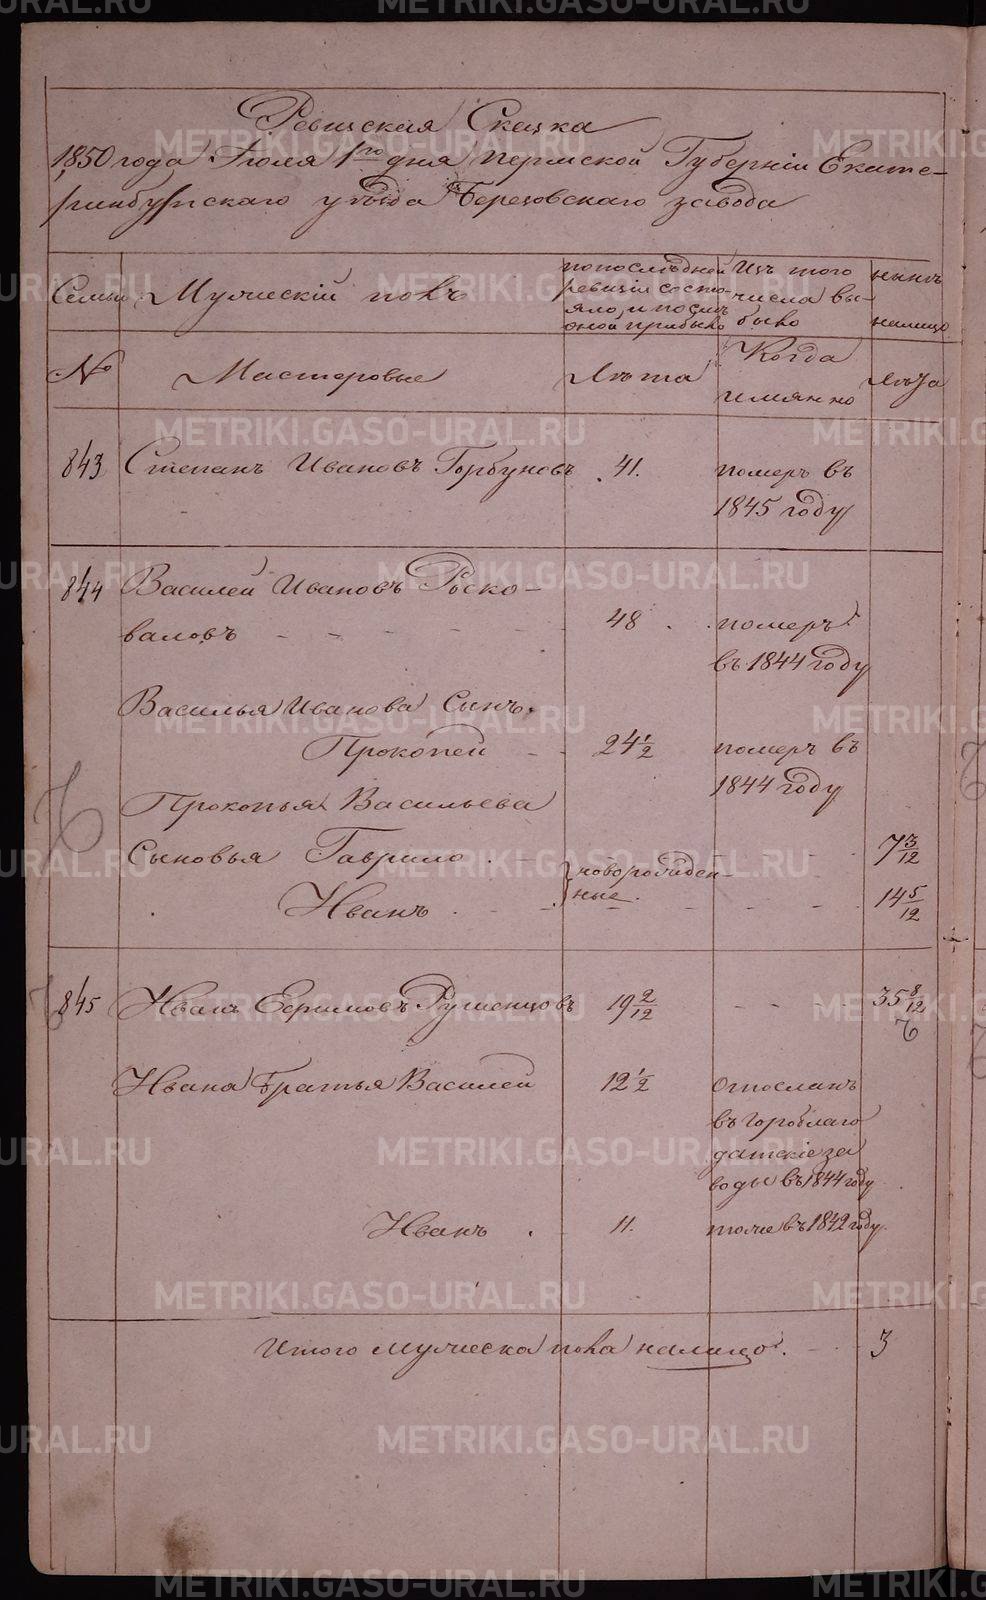 Ревизская Сказка
1850 года Июля 1го дня Пермской Губернiи Екате-
ринбургскаго уѣзда Березовскаго завода
Семьи Мужескiй полъ
по послѣдней ревизiи состо-
яло, и послѣ
оной прибыло
Изъ того
числа вы-
было
нынѣ
налицо
№ Мастеровые Лѣта Когда
имянно Лѣта
843 Степанъ Ивановъ Горбуновъ 41. померъ въ
1845 году
844 Василей Ивановъ Роско-
валовъ 48 померъ
въ 1844 году
Василья Иванова Сынъ
Прокопей 24 1/2 померъ въ
1844 году
Прокопья Васильева
Сыновья Гаврило 7 3/12
новорожден-
ные.
Иванъ 14 5/12
845 Иванъ Ефимовъ Румянцовъ 19 2/12 35 8/12
Ивана Братья Василей 12 1/2 Отосланъ
въ Гороблаго
датскiе за
воды въ 1844 году
Иванъ 11. тоже въ 1842 году
Итого мужеска пола налицо. 3
METRIKI.GASO-URAL.RU